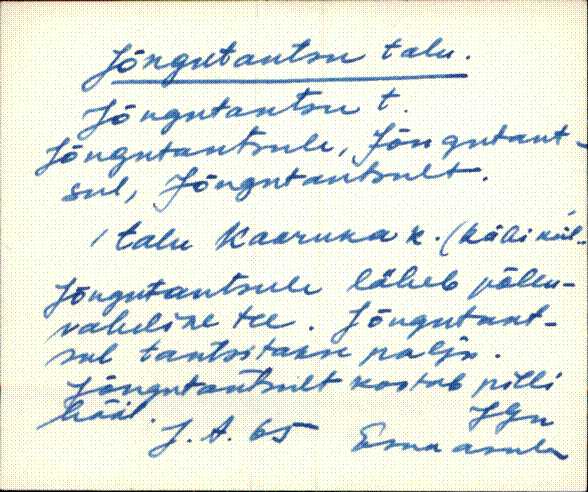 Jõngutantsu talu.
Jõngutantsu t.
Jõngutantsule, Jõngutant-
sul, Jõngutantsult.
1 talu Kaaruka k. (
Jõngutantsule läheb põllu-
vaheline tee. Jõngutant-
sul tantsitakse palju.
Jõngutantsult kostab pilli
hääl.
J. A. 65